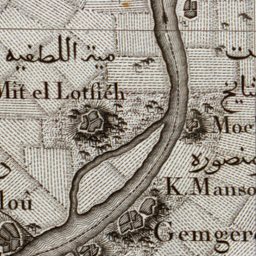 ميت اللطفيه
Mit el Lotfieh
Moc
منصوره
K. Manso
Gemger